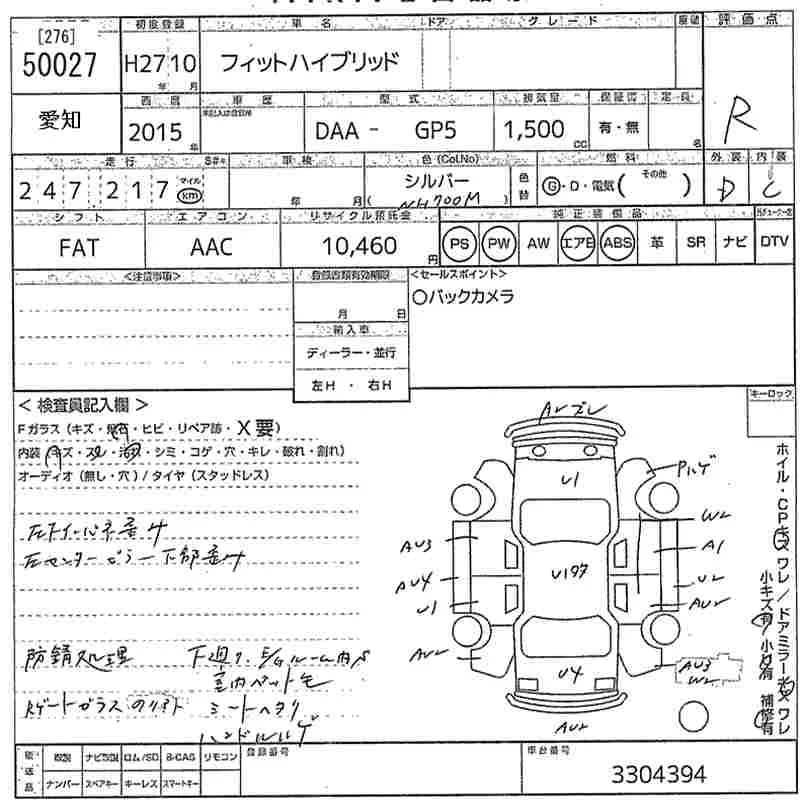 [276] 初度登録 車名 ドア グレード 評価点
50027 H27 10 フィットハイブリッド R
年 月
愛知 西暦 車歴 型式 排気量 保証書 定員
2015 年 DAA - GP5 1,500 CC 有・無 名
走行 車検 色(Col.No) 燃料 外装 内装
247217 マイル km 年 月 シルバー NH700M 色替 Ⓖ・D・電気( その他 ) D C
シフト エアコン リサイクル預託金 純正装備品
FAT AAC 10,460 円 PS PW AW エアB ABS 革 SR ナビ DTV
<注意事項> 登録書類有効期限 <セールスポイント>
月 日 ○バックカメラ
輸入車
ディーラー・並行
左H ・ 右H
< 検査員記入欄 > キーロック
Fガラス (キズ・飛石・ヒビ・リペア跡・X要)
内装 (キズ・スレ・汚れ・シミ・コゲ・穴・キレ・破れ・割れ)
オーディオ (無し・穴) / タイヤ (スタッドレス)
センターピラー下部歪み
防錆処理 下廻り
室内ペット毛
Rゲートガラス シートヘタリ
ハンドルハゲ
AUズレ
U1
Pハゲ
W2
AU3 A1
U197
AU4 U2
U1 AU2
AU2 U4 AU3
W2
AU2
ホイル・CPキズ ワレ / ドアミラーキズ ワレ
小キズ有 小凹有 補修有
後送品 取説 ナビ取説 ロム/SD B-CAS リモコン 登録番号 車台番号
ナンバー スペアキー キーレス スマートキー 3304394